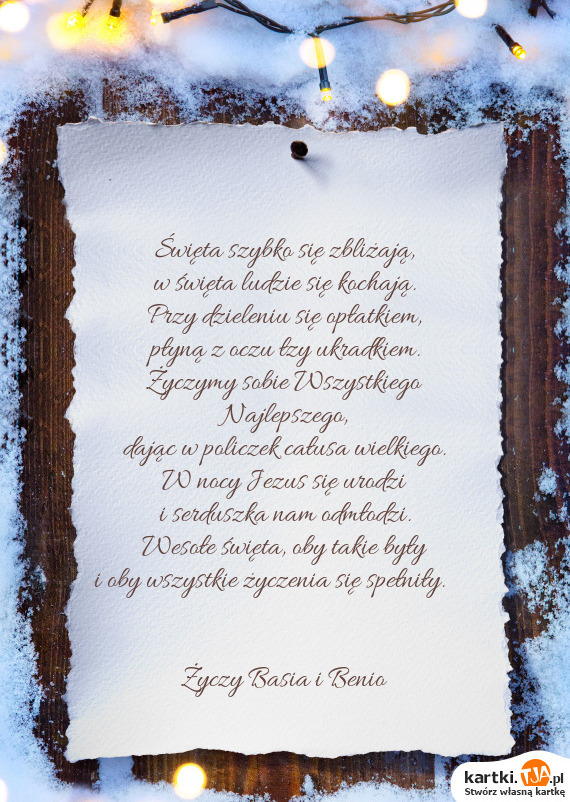 Święta szybko się zbliżają,
w święta ludzie się kochają.
Przy dzieleniu się opłatkiem,
płyną z oczu łzy ukradkiem.
Życzymy sobie Wszystkiego
Najlepszego,
dając w policzek całusa wielkiego.
W nocy Jezus się urodzi
i serduszka nam odmłodzi.
Wesołe święta, oby takie były
i oby wszystkie życzenia się spełniły.
Życzy Basia i Benio
kartki.TJA.pl
Stwórz własną kartkę